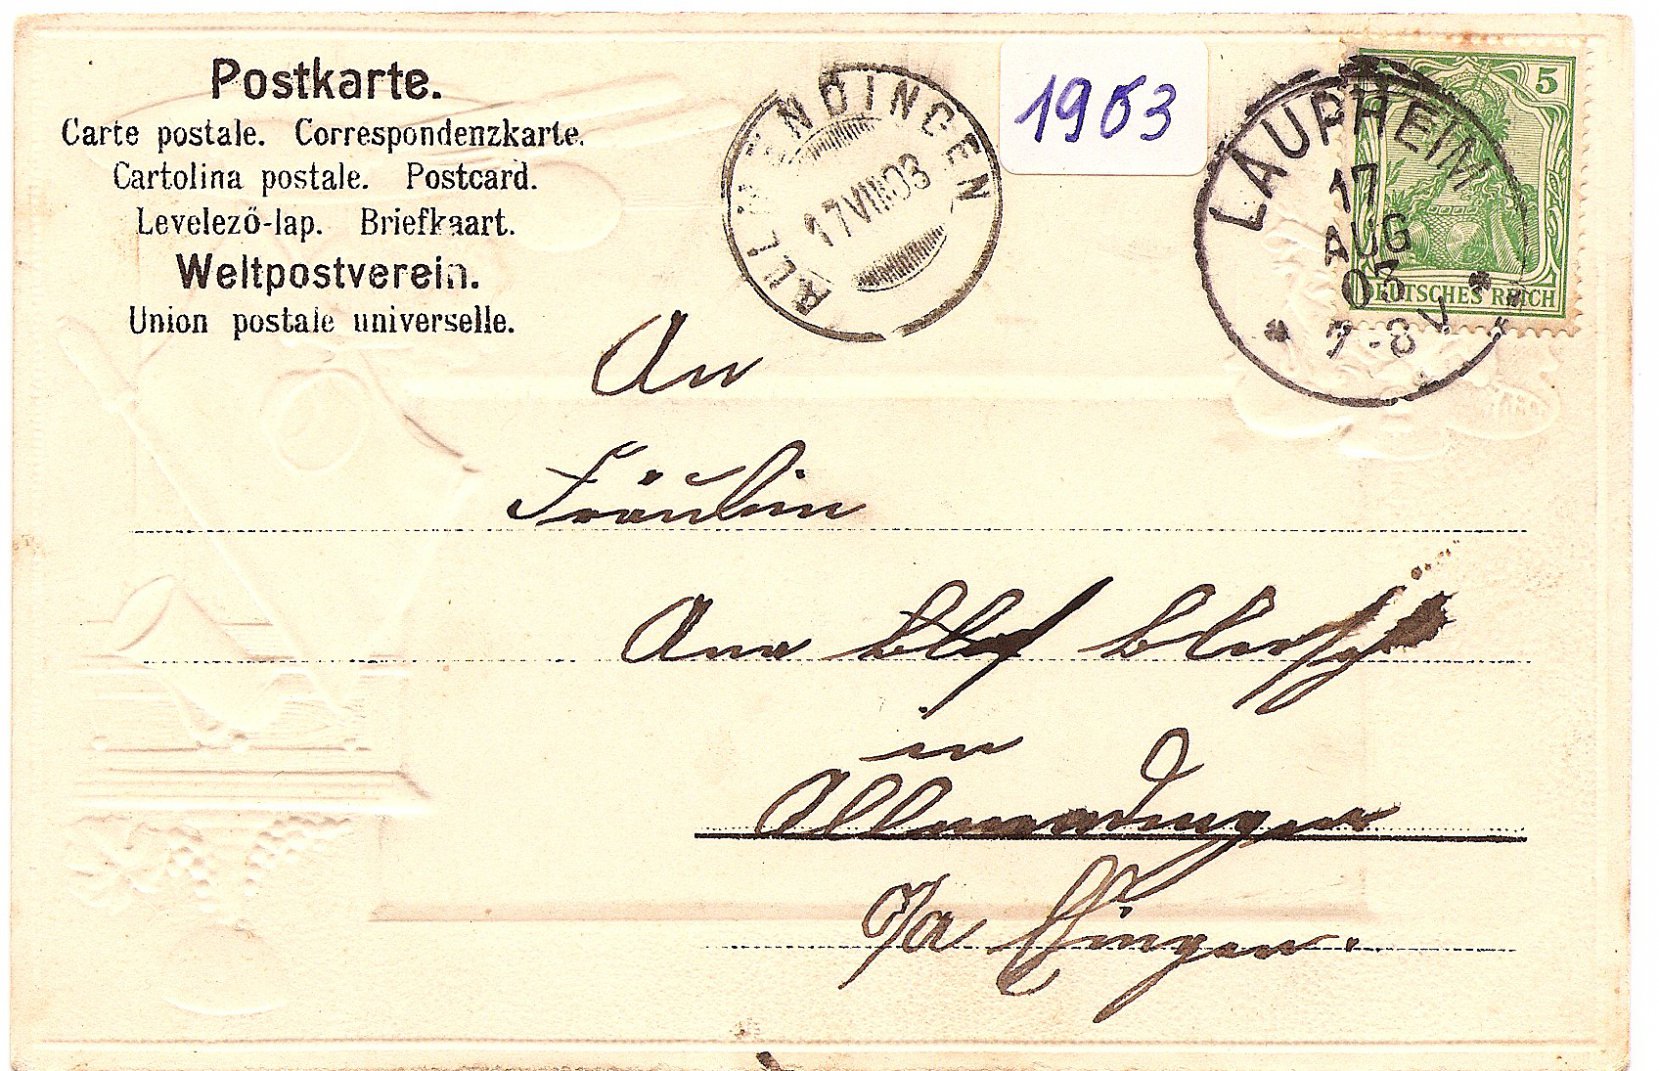 Postkarte.
Carte postale. Correspondenzkarte.
Cartolina postale. Postcard.
Levelező-lap. Briefkaart.
Weltpostverein.
Union postale universelle.
ALLMENDINGEN
17 VIII 03
1903
LAUPHEIM
17
AUG
03
7-8 V
5
DEUTSCHES REICH
An
Fräulein
Ana
in
Allmendingen
o/a Ehingen.